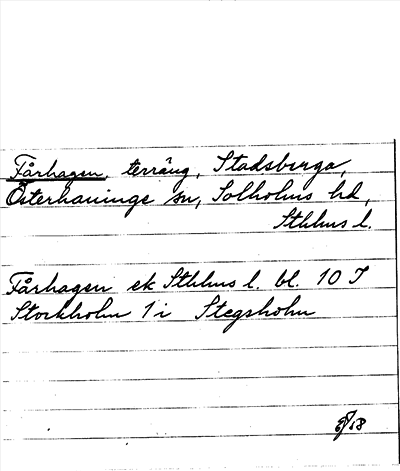 Fårhagen, terräng, Stadsberga,
Österhaninge sn, Solholms hd,
Sthlms l.
Fårhagen ek Sthlms l. bl. 10 I
Stockholm 1 i Stegsholm